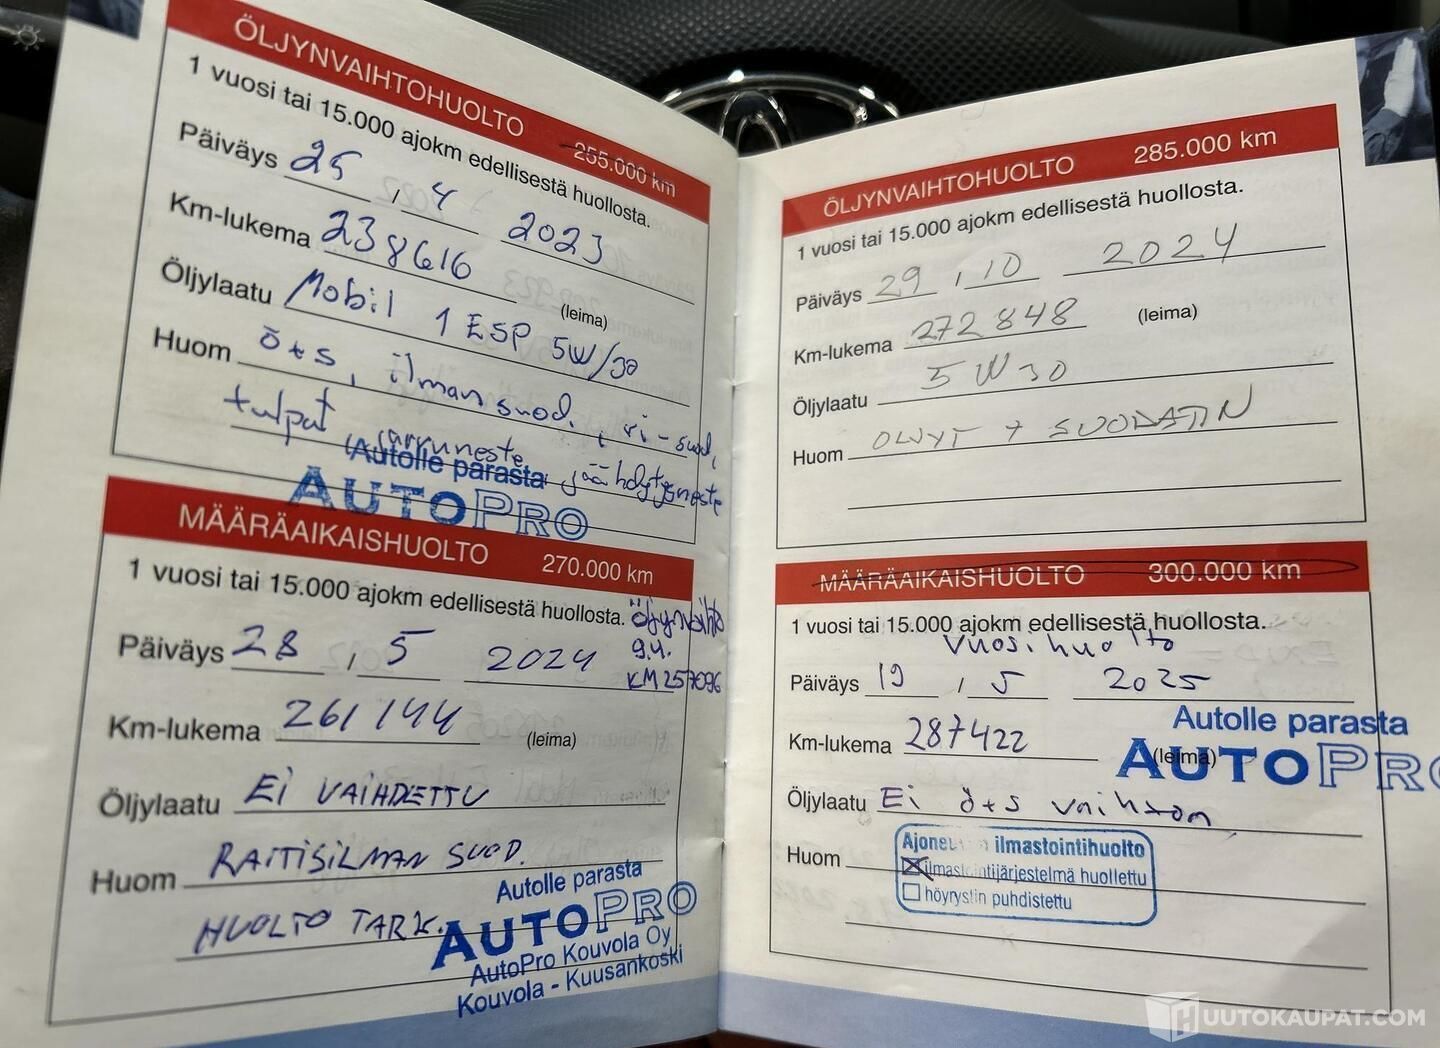 ÖLJYNVAIHTOHUOLTO 255.000 km
1 vuosi tai 15.000 ajokm edellisestä huollosta.
Päiväys 25 , 4 2023
Km-lukema 238616
(leima)
Öljylaatu Mobil 1 ESP 5W/30
Huom ö+s, ilmansuod., ri-suod,
tulpat jarruneste, jäähdytysneste
Autolle parasta
AUTOPRO
MÄÄRÄAIKAISHUOLTO 270.000 km
1 vuosi tai 15.000 ajokm edellisestä huollosta.
Öljynvaihto
9.4.
KM 257096
Päiväys 28 , 5 2024
Km-lukema 261144
(leima)
Öljylaatu EI VAIHDETTU
Huom RAITISILMAN SUOD.
HUOLTO TARK.
Autolle parasta
AUTOPRO
AutoPro Kouvola Oy
Kouvola - Kuusankoski
ÖLJYNVAIHTOHUOLTO 285.000 km
1 vuosi tai 15.000 ajokm edellisestä huollosta.
Päiväys 29 , 10 2024
Km-lukema 272848 (leima)
Öljylaatu 5W30
Huom ÖLJYT + SUODATIN
MÄÄRÄAIKAISHUOLTO 300.000 km
1 vuosi tai 15.000 ajokm edellisestä huollosta.
Vuosihuolto
Päiväys 19 , 5 2025
Km-lukema 287422 (leima)
Autolle parasta
AUTOPRO
Öljylaatu Ei ö+s vaihtoa
Huom
ilmastointihuolto
ilmastointijärjestelmä huollettu
höyrystin puhdistettu
HUUTOKAUPAT.COM